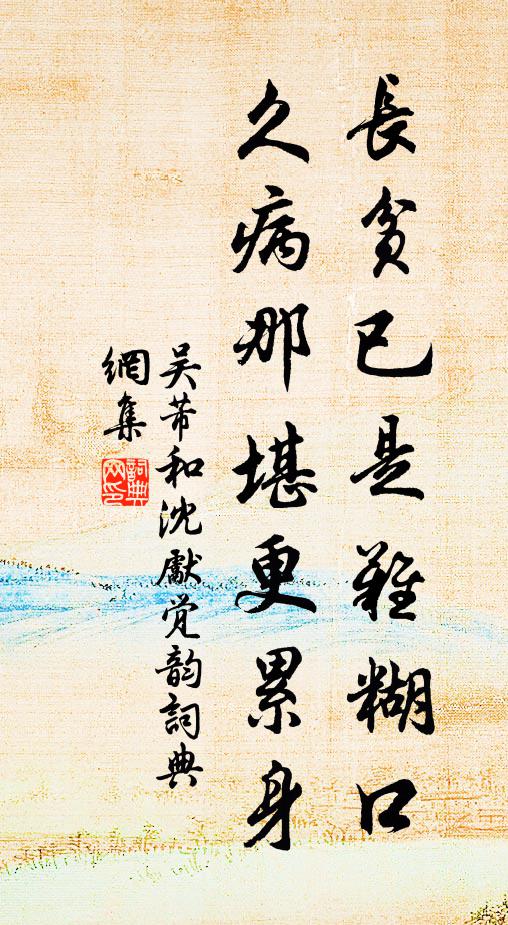 長貧已是難糊口
久病那堪更累身
吴芾和沈獻党韵詞典
網集
詞典
网印